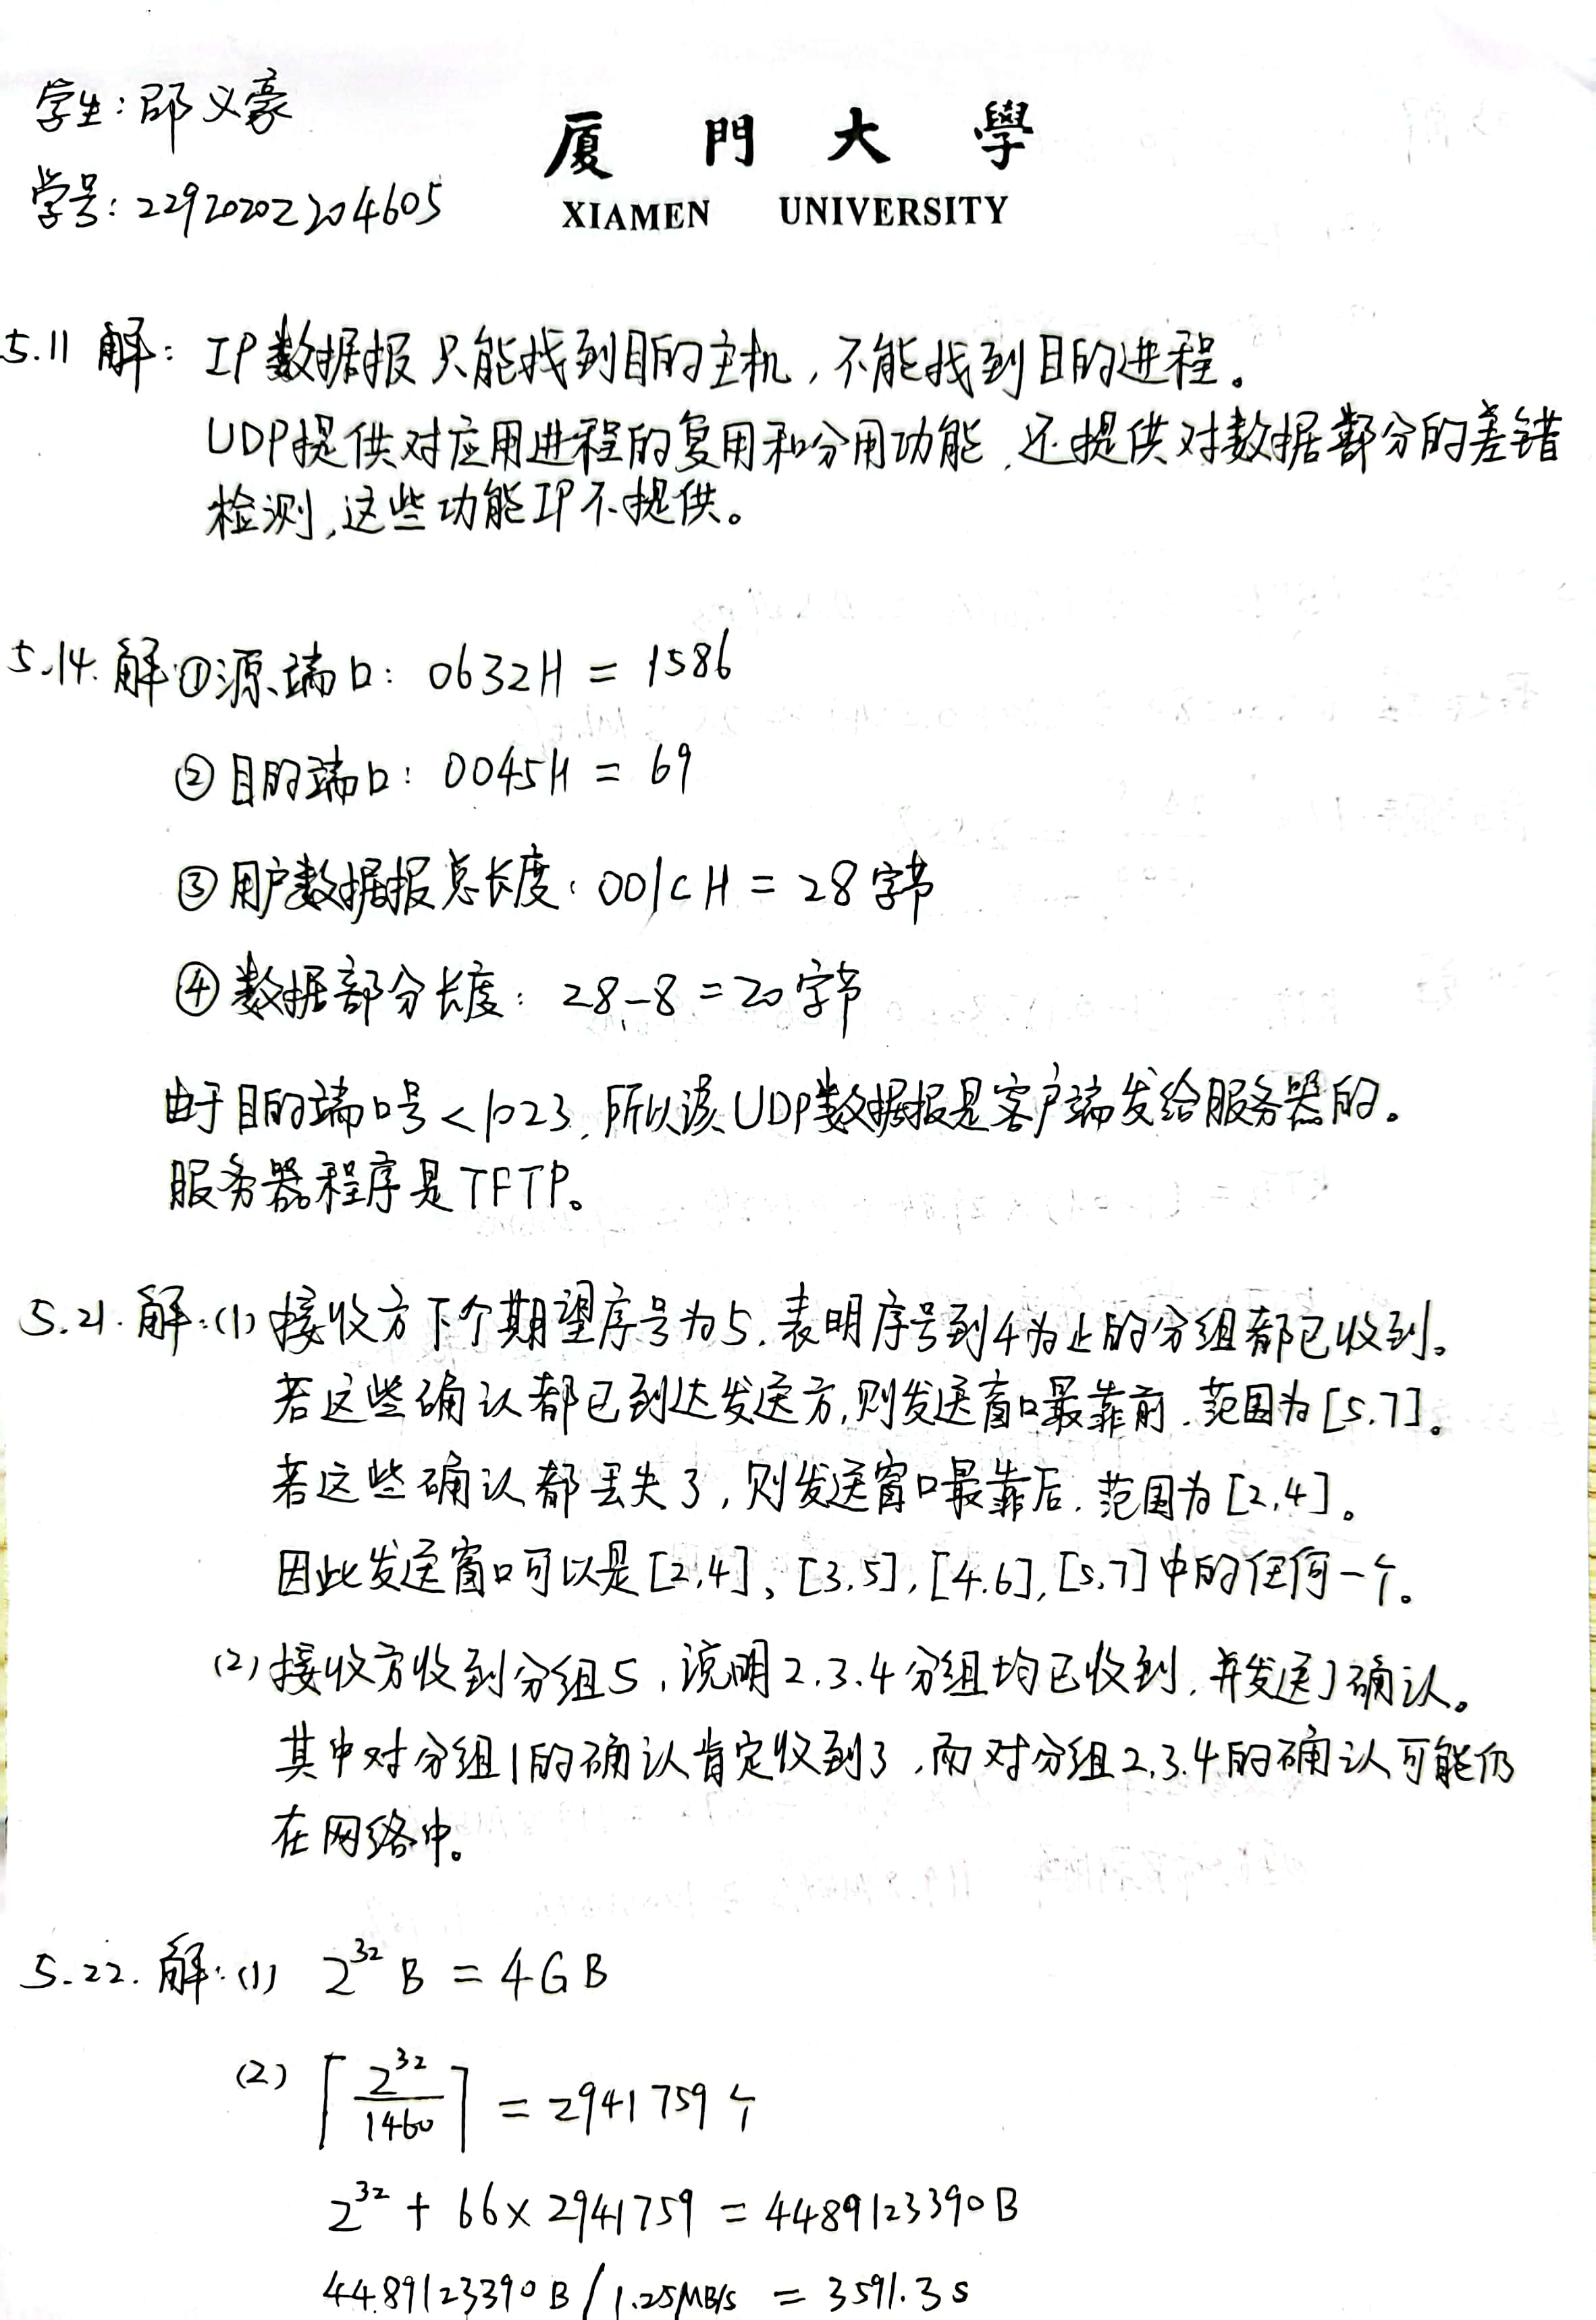 学生：邵义豪
学号：22920202204605
厦門大學
XIAMEN UNIVERSITY
5.11 解：IP数据报只能找到目的主机，不能找到目的进程。
UDP提供对应用进程的复用和分用功能，还提供对数据部分的差错
检测，这些功能IP不提供。
5.14. 解：①源端口：0632H = 1586
②目的端口：0045H = 69
③用户数据报总长度：001CH = 28字节
④数据部分长度：28-8=20字节
由于目的端口号<1023，所以该UDP数据报是客户端发给服务器的。
服务器程序是TFTP。
5.21. 解：(1) 接收方下个期望序号为5，表明序号到4为止的分组都已收到。
若这些确认都已到达发送方，则发送窗口最靠前，范围为[5,7]。
若这些确认都丢失了，则发送窗口最靠后，范围为[2,4]。
因此发送窗口可以是[2,4]、[3,5]，[4,6]，[5,7]中的任何一个。
(2) 接收方收到分组5，说明2.3.4分组均已收到，并发送了确认。
其中对分组1的确认肯定收到了，而对分组2.3.4的确认可能仍
在网络中。
5.22. 解：(1) 2³² B = 4GB
(2) ⌈2³²/1460⌉ = 2941759个
2³² + 66×2941759 = 4489123390B
4489123390B / 1.25MB/s = 3591.3s